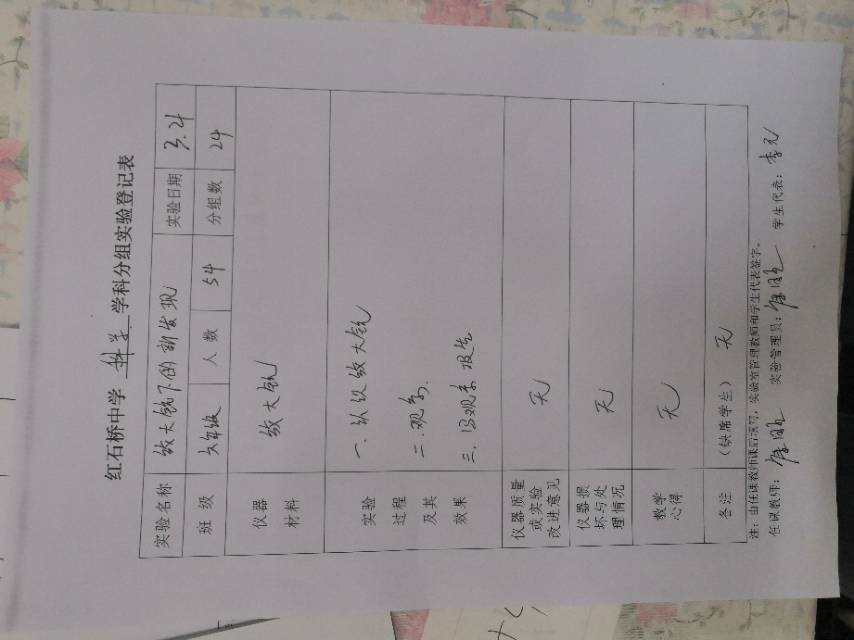 红石桥中学 科学 学科分组实验登记表
实验名称 放大镜下的新发现 实验日期 3.21
班 级 六年级 人 数 54 分组数 24
仪器
材料
放大镜
实验
过程
及其
效果
一.认识放大镜
二.观察.
三.写观察报告
仪器质量
或实验
改进意见
无
仪器损
坏与处
理情况
无
教学
心得
无
备注 (缺席学生) 无
注：由任课教师课后填写，实验室管理教师和学生代表签字。
任课教师： 实验管理员： 学生代表：